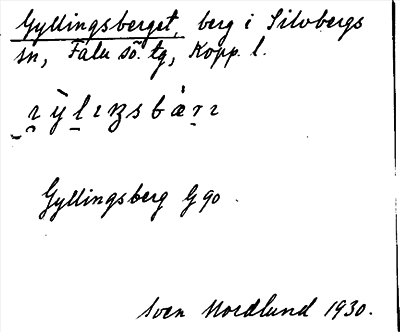 Gyllingsberget, berg i Silvbergs
sn, Falu sö. tg, Kopp. l.
Gyllingsberg G 90.
Sven Nordlund 1930.